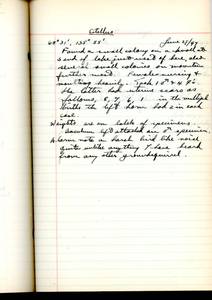 Citellus
60° 31', 135° 55' June 27/49
Found a small colony on a small
s end of lake just west of here, also
several small colonies on mountain
further west. Females nursing &
moulting heavily. Took 1 ♂ & 4 ♀s.
The latter had uterine scars as
follows, 8, 7, 6, 1 in the multiple
births the left horn had 2 in each
case.
Weights are on labels of specimens.
Baculum left attached on ♂ specimen.
Alarm note a harsh bird like noise
quite unlike anything I have heard
from any other ground squirrel.